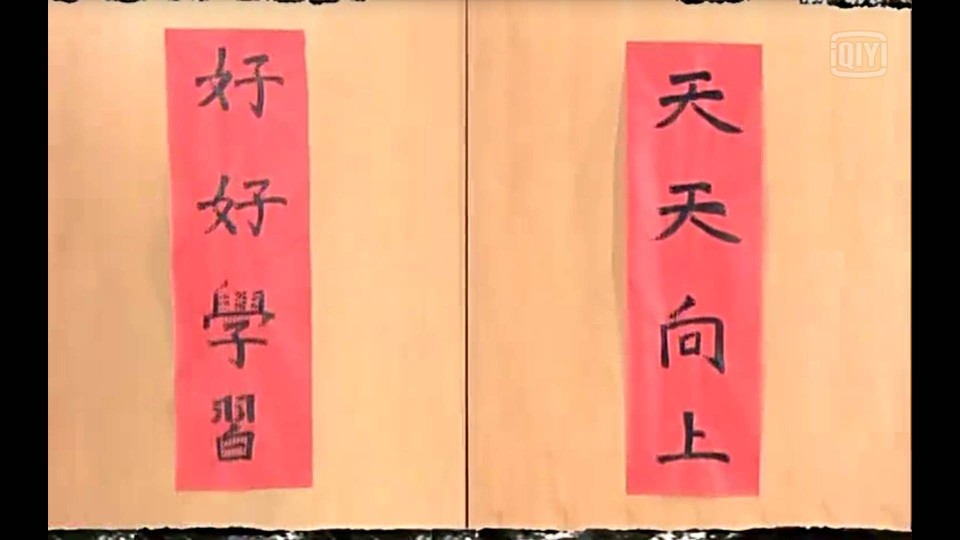 好好學習
天天向上
iQIYI